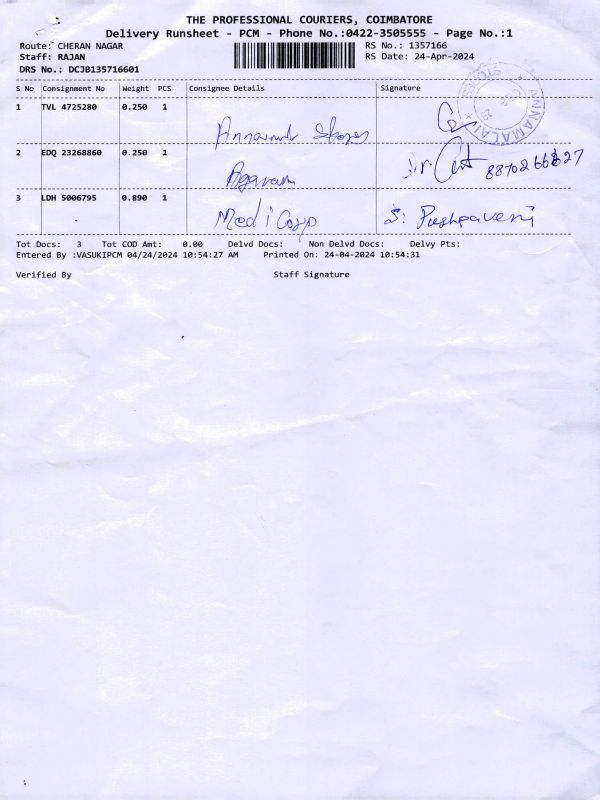 THE PROFESSIONAL COURIERS, COIMBATORE
Delivery Runsheet - PCM - Phone No.:0422-3505555 - Page No.:1
Route: CHERAN NAGAR RS No.: 1357166
Staff: RAJAN RS Date: 24-Apr-2024
DRS No.: DCJB135716601
S No Consignment No Weight PCS Consignee Details Signature
1 TVL 4725280 0.250 1
STORES ANNAMALAI
2 EDQ 23268860 0.250 1
3 LDH 5006795 0.890 1 Medi Corp S. Pushpaveni
Tot Docs: 3 Tot COD Amt: 0.00 Delvd Docs: Non Delvd Docs: Delvy Pts:
Entered By :VASUKIPCM 04/24/2024 10:54:27 AM Printed On: 24-04-2024 10:54:31
Verified By Staff Signature